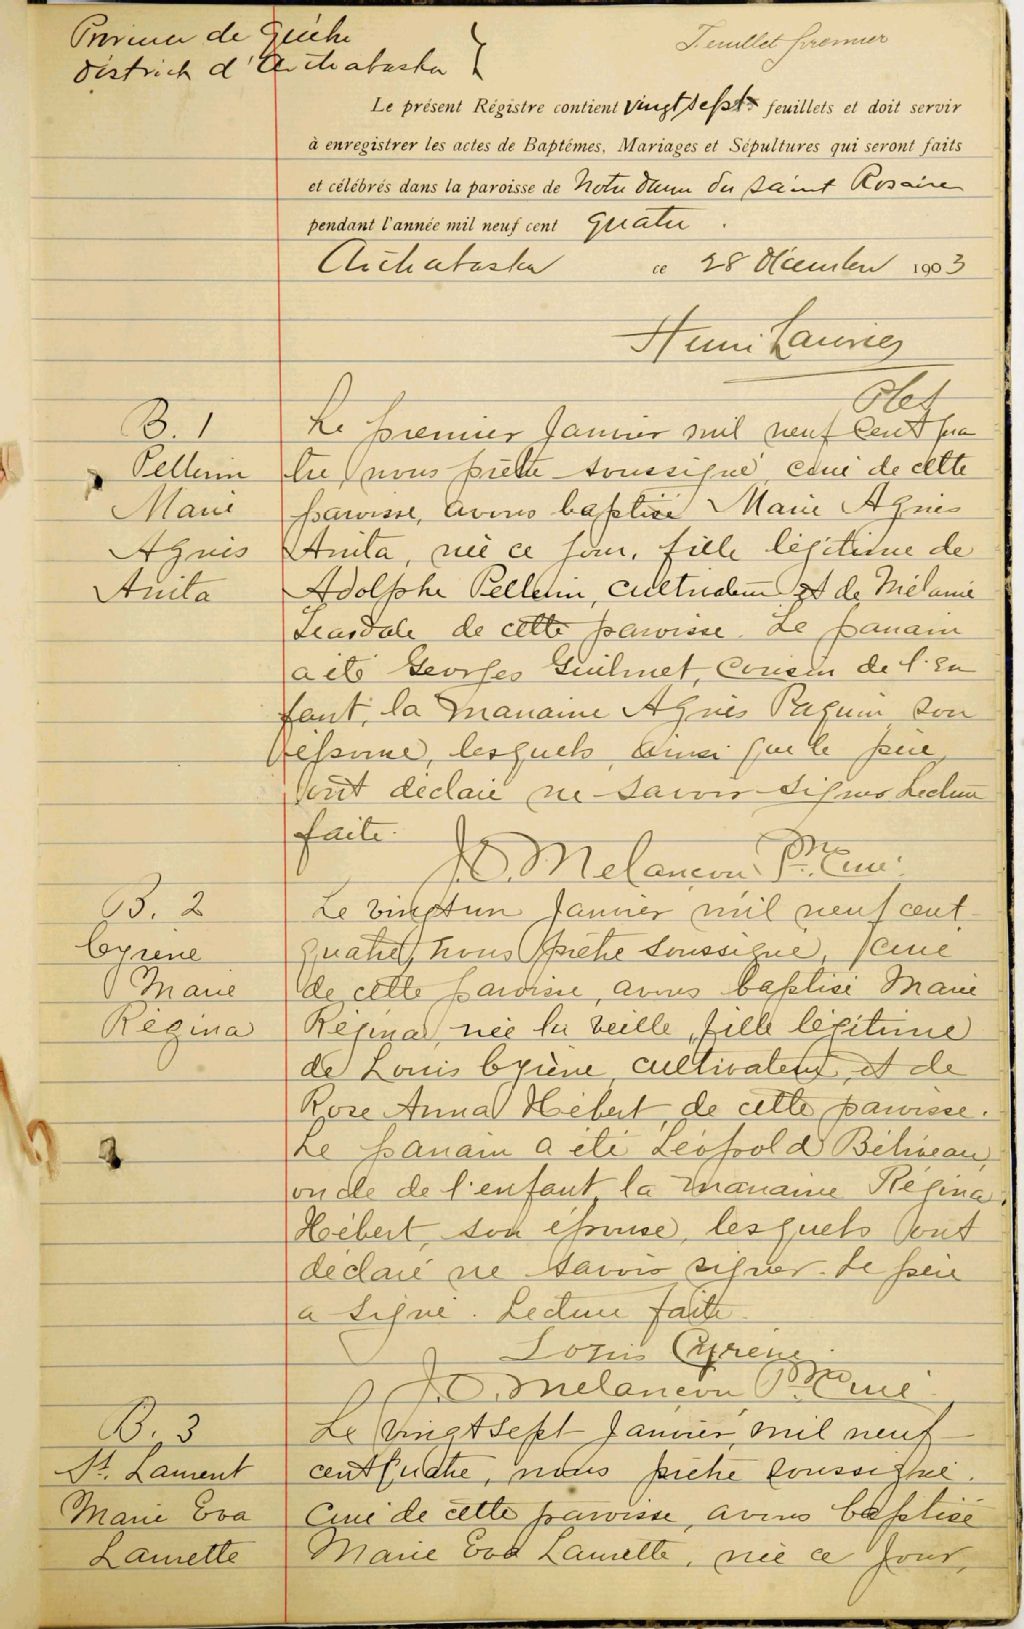 Province de Québec
District d'Arthabaska
Feuillet premier
Le présent Régistre contient vingt sept feuillets et doit servir
à enregistrer les actes de Baptêmes, Mariages et Sépultures qui seront faits
et célébrés dans la paroisse de Notre Dame du Saint Rosaire
pendant l'année mil neuf cent quatre.
Arthabaska ce 28 Décembre 1903
Henri Laurier
B. 1
Pellerin
Marie
Agnès
Anita
Le premier Janvier mil neuf cent qua
tre, nous prêtre soussigné, curé de cette
paroisse, avons baptisé Marie Agnès
Anita, née ce jour, fille légitime de
Adolphe Pellerin, cultivateur et de Mélanie
de cette paroisse. Le parrain
a été Georges Guilmet, cousin de l'en
fant, la marraine Agnès Paquin, son
épouse, lesquels, ainsi que le père
ont déclaré ne savoir signer Lecture
faite.
J. O. Melançon Ptre Curé.
B. 2
Cyrène
Marie
Régina
Le vingt un Janvier mil neuf cent
quatre, nous prêtre soussigné, curé
de cette paroisse, avons baptisé Marie
Régina, née la veille, fille légitime
de Louis Cyrène, cultivateur, et de
Rose Anna Hébert, de cette paroisse.
Le parrain a été Léopold Béliveau,
oncle de l'enfant, la marraine Régina
Hébert, son épouse, lesquels ont
déclaré ne savoir signer. Le père
a signé. Lecture faite.
Louis Cyrène.
J. O. Melançon Ptre Curé.
B. 3
St. Laurent
Marie Eva
Laurette
Le vingt sept Janvier, mil neuf
cent quatre, nous prêtre soussigné.
Curé de cette paroisse, avons baptisé
Marie Eva Laurette, née ce jour,